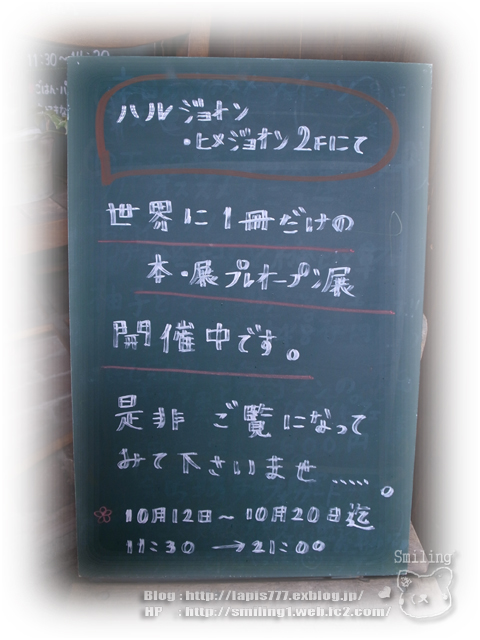 11:30～14:30
ハルジョオン
・ヒメジョオン2Fにて
世界に1冊だけの
本・展プレオープン展
開催中です。
是非 ご覧になって
みて下さいませ……。
10月12日～10月20日迄
11:30→21:00
Smiling
Blog : http://lapis777.exblog.jp/
HP : http://smiling1.web.fc2.com/